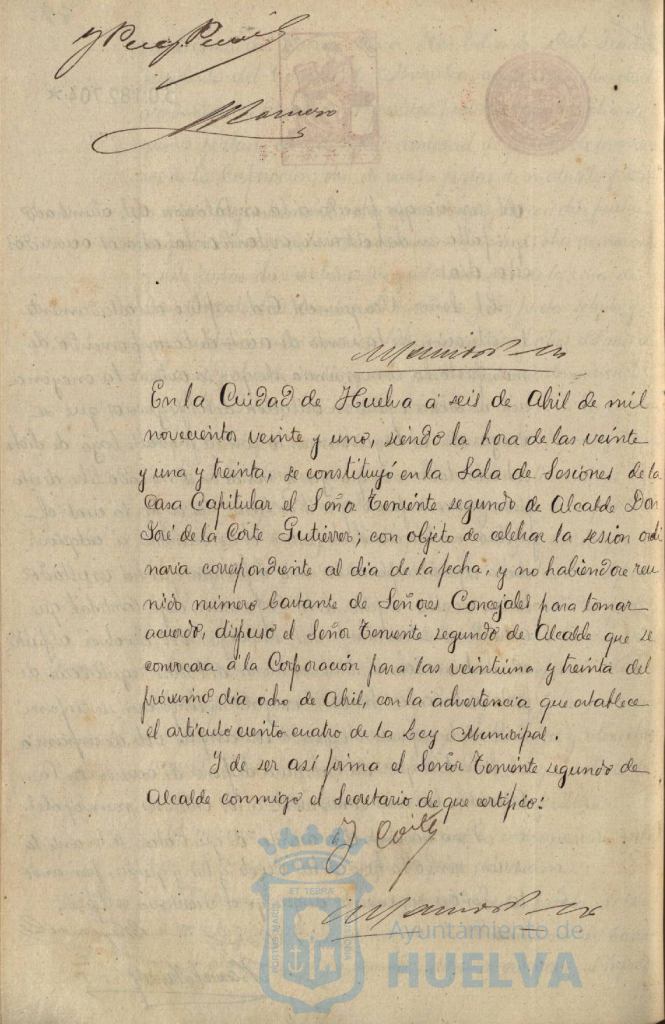 En la Ciudad de Huelva á seis de Abril de mil
novecientos veinte y uno, siendo la hora de las veinte
y una y treinta, se constituyó en la Sala de Sesiones de la
Casa Capitular el Señor Teniente segundo de Alcalde Don
José de la Corte Gutierrez; con objeto de celebrar la sesión ordi
naria correspondiente al dia de la fecha, y no habiendose reu
nido numero bastante de Señores Concejales para tomar
acuerdo, dispuso el Señor Teniente segundo de Alcalde que se
convocara á la Corporación para las veintiuna y treinta del
próximo dia ocho de Abril, con la advertencia que establece
el articulo ciento cuatro de la Ley Municipal.
Y de ser así firma el Señor Teniente segundo de
Alcalde conmigo el Secretario de que certifico:
J Corte
ET TERRAE
PORTUS MARIS
CUSTODIA
Ayuntamiento de
HUELVA